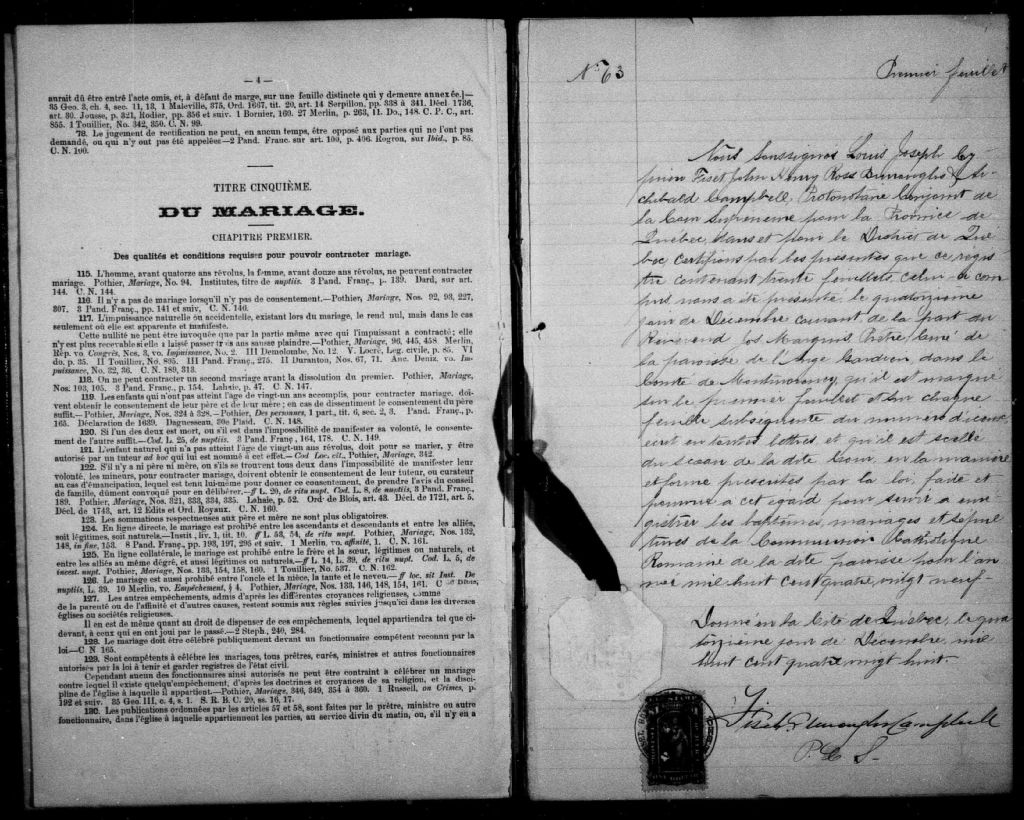 — 4 —
aurait dû être entré l'acte omis, et, à défaut de marge, sur une feuille distincte qui y demeure annexée.]—
35 Geo. 3, ch. 4, sec. 11, 13, 1 Maleville, 375, Ord. 1667, tit. 20, art. 14 Serpillon, pp. 338 à 341. Décl. 1736,
art. 30. Jousse, p. 321, Rodier, pp. 356 et suiv. 1 Bornier, 160. 27 Merlin, p. 263, 11. Do., 148. C. P. C., art.
855. 1 Touillier, No. 342, 350. C. N. 99.
78. Le jugement de rectification ne peut, en aucun temps, être opposé aux parties qui ne l'ont pas
demandé, ou qui n'y ont pas été appelées—2 Pand. Franc. sur art. 100, p. 406. Rogron, sur Ibid., p. 85.
C. N. 100.
TITRE CINQUIÈME.
DU MARIAGE.
CHAPITRE PREMIER.
Des qualités et conditions requises pour pouvoir contracter mariage.
115. L'homme, avant quatorze ans révolus, la femme, avant douze ans révolus, ne peuvent contracter
mariage. Pothier, Mariage, No. 94. Institutes, titre de nuptiis. 3 Pand. Franç., p. 139. Dard, sur art.
144. C. N. 144.
116. Il n'y a pas de mariage lorsqu'il n'y pas de consentement.—Pothier, Mariage, Nos. 92, 93, 227,
307. 3 Pand. Franç., pp. 141 et suiv, C. N. 146.
117. L'impuissance naturelle ou accidentelle, existant lors du mariage, le rend nul, mais dans le cas
seulement où elle est apparente et manifeste.
Cette nullité ne peut être invoquée que par la partie même avec qui l'impuissant a contracté; elle
n'y est plus recevable si elle a laissé passer trois ans sans se plaindre.—Pothier, Mariage, 96, 445, 458. Merlin,
Rép. vo Congrès, Nos. 3, vo. Impuissance, No. 2. III Demolombe, No. 12. V. Locré, Leg. civile, p. 85. VI
do, p. 35. II Touillier, No. 805. III Pand. Franç., 275. II Duranton, Nos 67, 71. Anc. Deniz. vo. Im-
puissance, No. 32, 36. C. N. 189, 313.
118. On ne peut contracter un second mariage avant la dissolution du premier. Pothier, Mariage,
Nos. 103, 105. 3 Pand. Franç., p. 154. Lahaie, p. 47. C. N. 147.
119. Les enfants qui n'ont pas atteint l'âge de vingt-un ans accomplis, pour contracter mariage, doi-
vent obtenir le consentement de leur père et de leur mère; en cas de dissentiment le consentement du père
suffit.—Pothier, Mariage, Nos 324 à 328.—Pothier, Des personnes, 1 part., tit. 6, sec. 2, 3. Pand. Franç., p.
165. Déclaration de 1639. Daguesseau, 30e Plaid. C. N. 148.
120. Si l'un des deux est mort, ou s'il est dans l'impossibilité de manifester sa volonté, le consente-
ment de l'autre suffit.—Cod. L. 25, de nuptiis. 3 Pand. Franç, 164, 178. C. N. 149.
121. L'enfant naturel qui n'a pas atteint l'âge de vingt-un ans révolus, doit pour se marier, y être
autorisé par un tuteur ad hoc qui lui est nommé à cet effet.—Cod Loc. cit., Pothier, Mariage, 342.
122. S'il n'y a ni père ni mère, ou s'ils se trouvent tous deux dans l'impossibilité de manifester leur
volonté, les mineurs, pour contracter mariage, doivent obtenir le consentement de leur tuteur, ou curateur
au cas d'émancipation, lequel est tenu lui-même pour donner ce consentement, de prendre l'avis du conseil
de famille, dûment convoqué pour en délibérer.—ff L. 20, de ritu nupt. Cod. L. 8, de nuptiis, 3 Pand. Franç.,
189. Pothier, Mariage, Nos. 321, 333, 334, 335. Lahaie, p. 52. Ord. de Blois, art. 43. Décl. de 1721, art. 5.
Décl. de 1743, art. 12 Edits et Ord. Royaux. C. N. 160.
123. Les sommations respectueuses aux père et mère ne sont plus obligatoires.
124. En ligne directe, le mariage est prohibé entre les ascendants et descendants et entre les alliés,
soit légitimes, soit naturels.—Instit, liv. 1, tit. 10. ff L. 53, 54, de ritu nupt. Pothier, Mariage, Nos. 132,
148, in fine, 153. 8 Pand. Franç., pp. 193, 197, 295 et suiv. 1 Merlin, vo. affinité, 1. C. N. 161.
125. En ligne collatérale, le mariage est prohibé entre le frère et la sœur, légitimes ou naturels, et
entre les alliés au même dégré, et aussi légitimes ou naturels.—ff L. 14, L. 39, de ritu nupt. Cod. L. 5, de
incest. nupt. Pothier, Mariage, Nos. 133, 154, 158, 160. 1 Touillier, No. 537. C. N. 162.
126. Le mariage est aussi prohibé entre l'oncle et la nièce, la tante et le neveu.—ff loc. sit Inst. De
nuptiis, L. 39. 10 Merlin, vo. Empêchement, § 4. Pothier, Mariage, Nos. 133, 146, 148, 154, 161. C
127. Les autres empêchements, admis d'après les différentes croyances religieuses, comme
de la parenté ou de l'affinité et d'autres causes, restent soumis aux règles suivies jusqu'ici dans les diverses
églises ou sociétés religieuses.
Il en est de même quant au droit de dispenser de ces empêchements, lequel appartiendra tel que ci-
devant, à ceux qui en ont joui par le passé.—2 Steph., 240, 284.
128. Le mariage doit être célébré publiquement devant un fonctionnaire compétent reconnu par la
loi—C. N 165.
129. Sont compétents à célébre les mariages, tous prêtres, curés, ministres et autres fonctionnaires
autorisés par la loi à tenir et garder registres de l'état civil.
Cependant aucun des fonctionnaires ainsi autorisés ne peut être contraint à célébrer un mariage
contre lequel il existe quelqu'empêchement, d'après les doctrines et croyances de sa religion, et la disci-
pline de l'église à laquelle il appartient—Pothier, Mariage, 346, 349, 354 à 360. 1 Russell, on Crimes, p.
192 et suiv. 35 Geo. III, c. 4, s. 1. S. R. B. C. 20, ss. 16, 17.
130. Les publications ordonnées par les articles 57 et 58, sont faites par le prêtre, ministre ou autre
fonctionnaire, dans l'église à laquelle appartiennent les parties, au service divin du matin, ou, s'il n'y en a
No 63
Premier feuillet
Nous Soussignés Louis Joseph Cy-
prien Fiset John Henry Ross Burroughs & Ar-
chibald Campbell Protonotaire Conjoint de
la Cour Supérieure pour la Province de
Québec, dans et pour le District de Qué-
bec certifions par les présentes que ce regis-
tre contenant trente feuillets celui-ci com-
pris nous a été présenté le quatorzième
jour de Décembre courant de la part du
Révérend Jos Marquis Prêtre Curé de
la paroisse de l'Ange Gardien dans le
Comté de Montmorency, qu'il est marqué
sur le premier feuillet et sur chaque
feuille subséquente du numéro d'icelui
écrit en toutes lettres, et qu'il est scellé
du sceau de la dite Cour, en la manière
et forme prescrites par la loi, faite et
pourvue à cet égard pour servir à enre-
gistrer les baptêmes, mariages et sépul-
tures de la Communion Catholique
Romaine de la dite paroisse pour l'an-
née mil huit cent quatre vingt neuf-
Donné en la Cité de Québec, le qua-
torzième jour de Décembre mil
huit cent quatre vingt huit.
Fiset Burroughs Campbell
P. C. S.